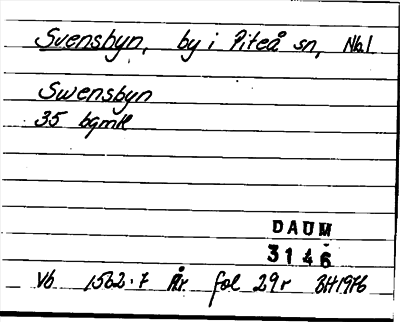 Svensbyn, by i Piteå sn, Nbl
Swensbyn
35 bgmk
DAUM
3146
Vb 1562:7 År fol 29r BH1976